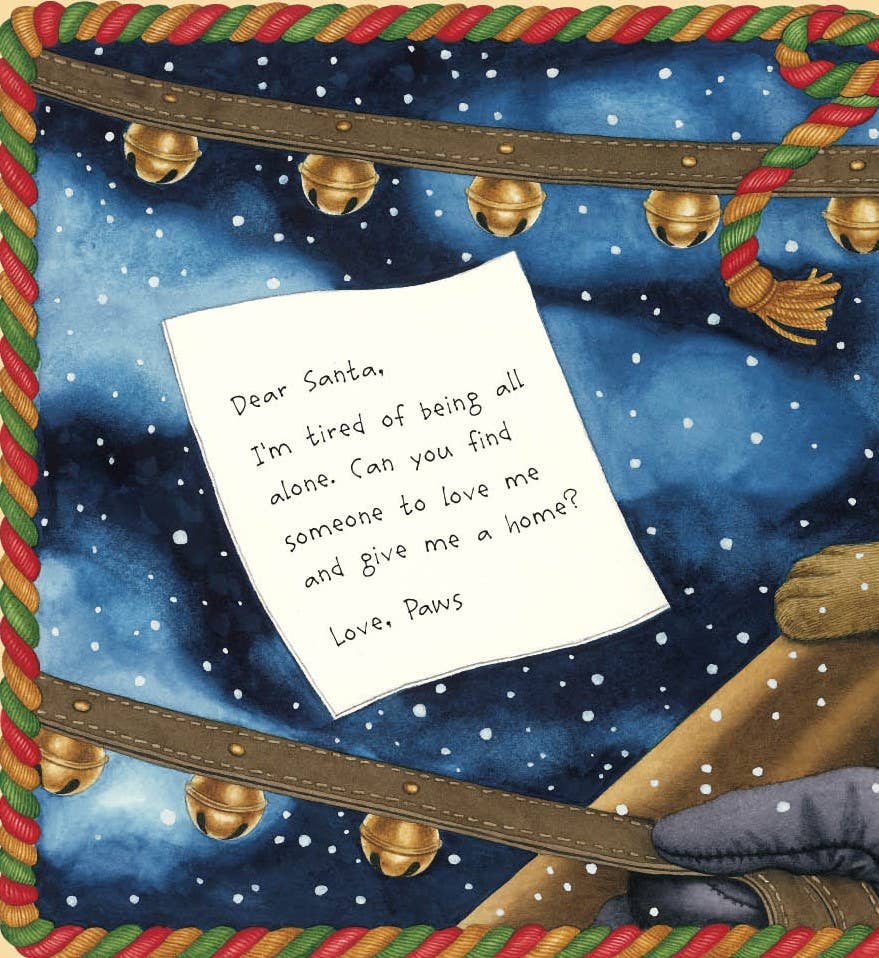 Dear Santa,
I'm tired of being all
alone. Can you find
someone to love me
and give me a home?
Love, Paws